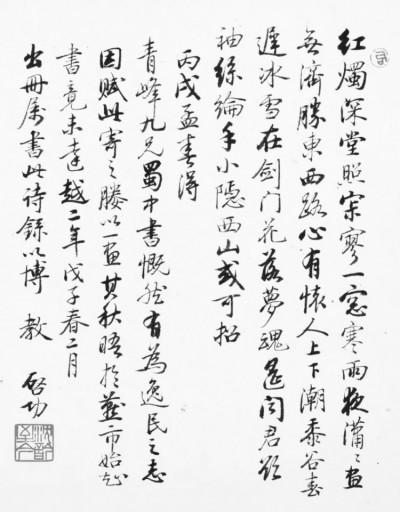 紅燭深堂照寂寥一窓寒雨夜瀟〻画
無濟勝東西路心有懷人上下潮黍谷春
遲冰雪在劍门花落夢魂遙闻君欲
袖絲綸手小隱西山或可招
丙戌孟春得
青峰九兄蜀中書慨然有為逸民之志
因賦此寄之媵以一画其秋晤於燕市始知
書竟未達越二年戊子春二月
出冊属書此詩録以博 教 啓功